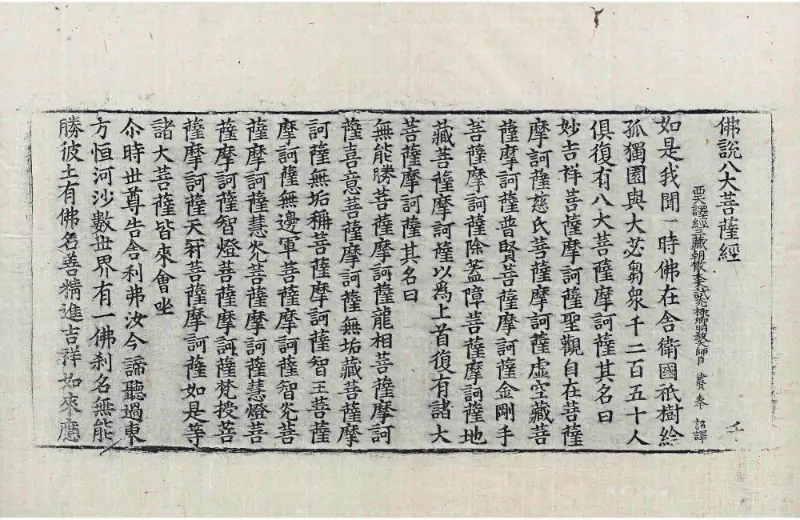 佛說八大菩薩經
譯經三藏朝散大夫試 卿明教大師 奉 詔譯
如是我聞一時佛在舍衛國祇樹給
孤獨園與大苾芻衆千二百五十人
俱復有八大菩薩摩訶薩其名曰
妙吉祥菩薩摩訶薩聖觀自在菩薩
摩訶薩慈氏菩薩摩訶薩虛空藏菩
薩摩訶薩普賢菩薩摩訶薩金剛手
菩薩摩訶薩除蓋障菩薩摩訶薩地
藏菩薩摩訶薩以爲上首復有諸大
菩薩摩訶薩其名曰
無能勝菩薩摩訶薩龍相菩薩摩訶
薩喜意菩薩摩訶薩無垢藏菩薩摩
訶薩無垢稱菩薩摩訶薩智王菩薩
摩訶薩無邊軍菩薩摩訶薩智炎菩
薩摩訶薩慧炎菩薩摩訶薩慧燈菩
薩摩訶薩智燈菩薩摩訶薩梵授菩
薩摩訶薩天軒菩薩摩訶薩如是等
諸大菩薩皆來會坐
尒時世尊告舍利弗汝今諦聽過東
方恒河沙數世界有一佛刹名無能
勝彼土有佛名善精進吉祥如來應